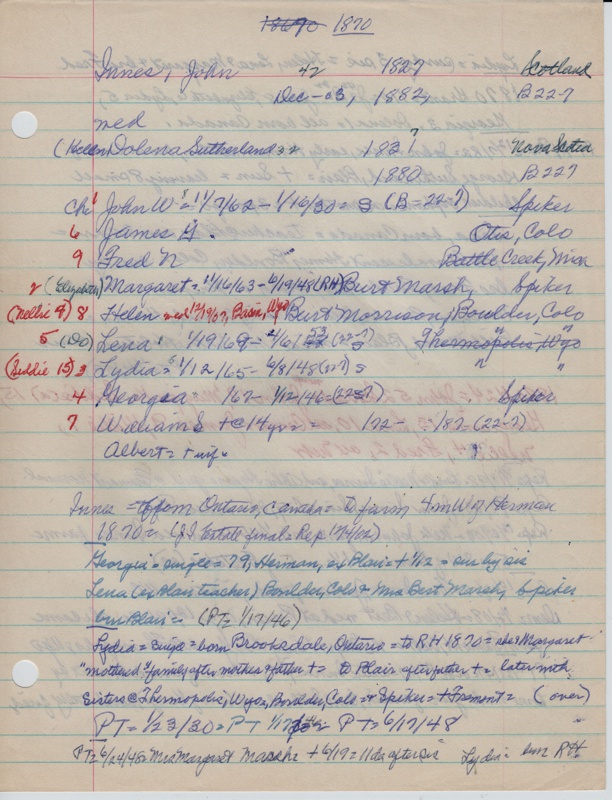 1870
Innes, John 42 1827 Scotland
Dec - 1882, B 22-7
med
(Helen) Dolena Sutherland 32 183? Nova Scotia
1880 B 227
Ch 1 John W = 1/7/62 - 1/16/30 = S (B = 22-7) Spiker
6 James H. Otis, Colo
9 Fred N Battle Creek, Mich
2 (Elizabeth) Margaret = 11/16/63 - 6/19/48 (RH) Burt Marsh, Spiker
(Nellie 9) 8 Helen = med 12/19/07, Basin, Wyo Burt Morrison, Boulder, Colo
5 (Do) Lena 1/19/69 = 2/6/53 (22-7) S Thermopolis, Wyo
(Liddie 15) 3 Lydia = 5/12/65 - 6/8/48 (227) S " "
4 Georgia = 67 - 1/12/46 = (227) Spiker
7 William S + @ 14 yrs = 172 - 187 = (22-7)
Albert = + inf. "
Innes = from Ontario, Canada = to farm 4 m W of Herman
1870 = (JI Estate final = Rep
Georgia = single = 79, Herman, ex Blair = + 1/12 = sur by sis
Lena (ex Blair teacher) Boulder, Colo & Mrs Burt Marsh, Spiker
bur Blair = (PT = 1/17/46)
Lydia = single = born Brooksdale, Ontario = to RH 1870 = she & Margaret
"mothered" family after mother & father + = to Blair after father + = later with
Sisters @ Thermopolis, Wyo, Boulder, Colo = + Spiker = + Fremont = (over)
PT = 1/23/30 = PT 1/17/46 = PT = 6/17/48 "
PT = 6/24/48 = Mrs Margaret Marsh = + 6/19 = 11 da after sis " Lydia = bur RH